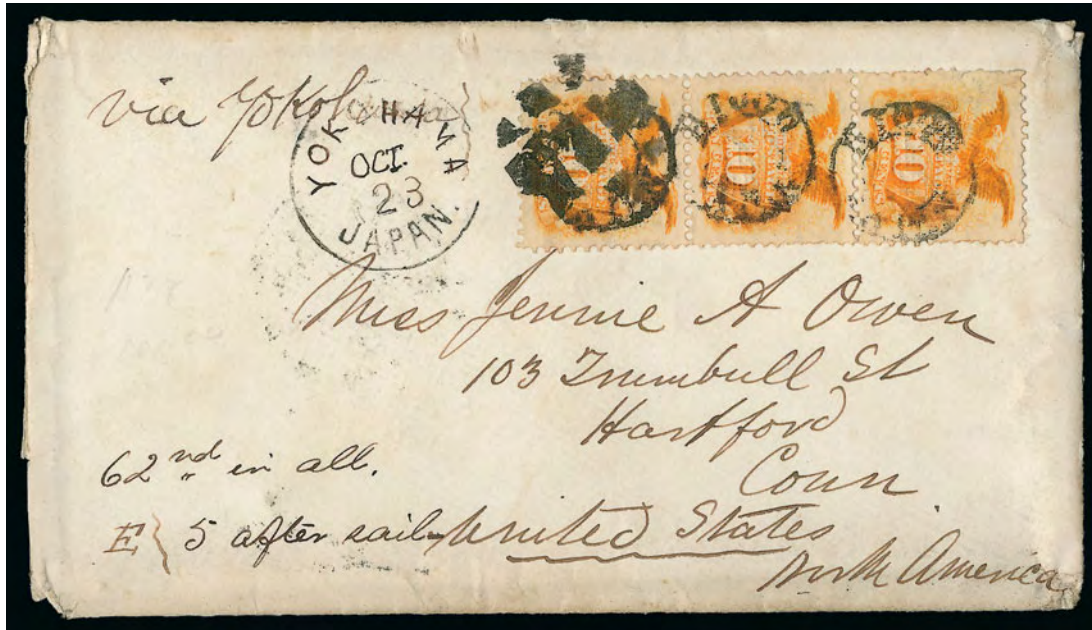 via Yokohama
YOKOHAMA
OCT.
23
JAPAN.
HIOGO
JAPAN
HIOGO
JAPAN
10
10
Miss Jennie A Owen
103 Trumbull St
Hartford
Conn
United States
North America
62nd in all.
E } 5 after sail